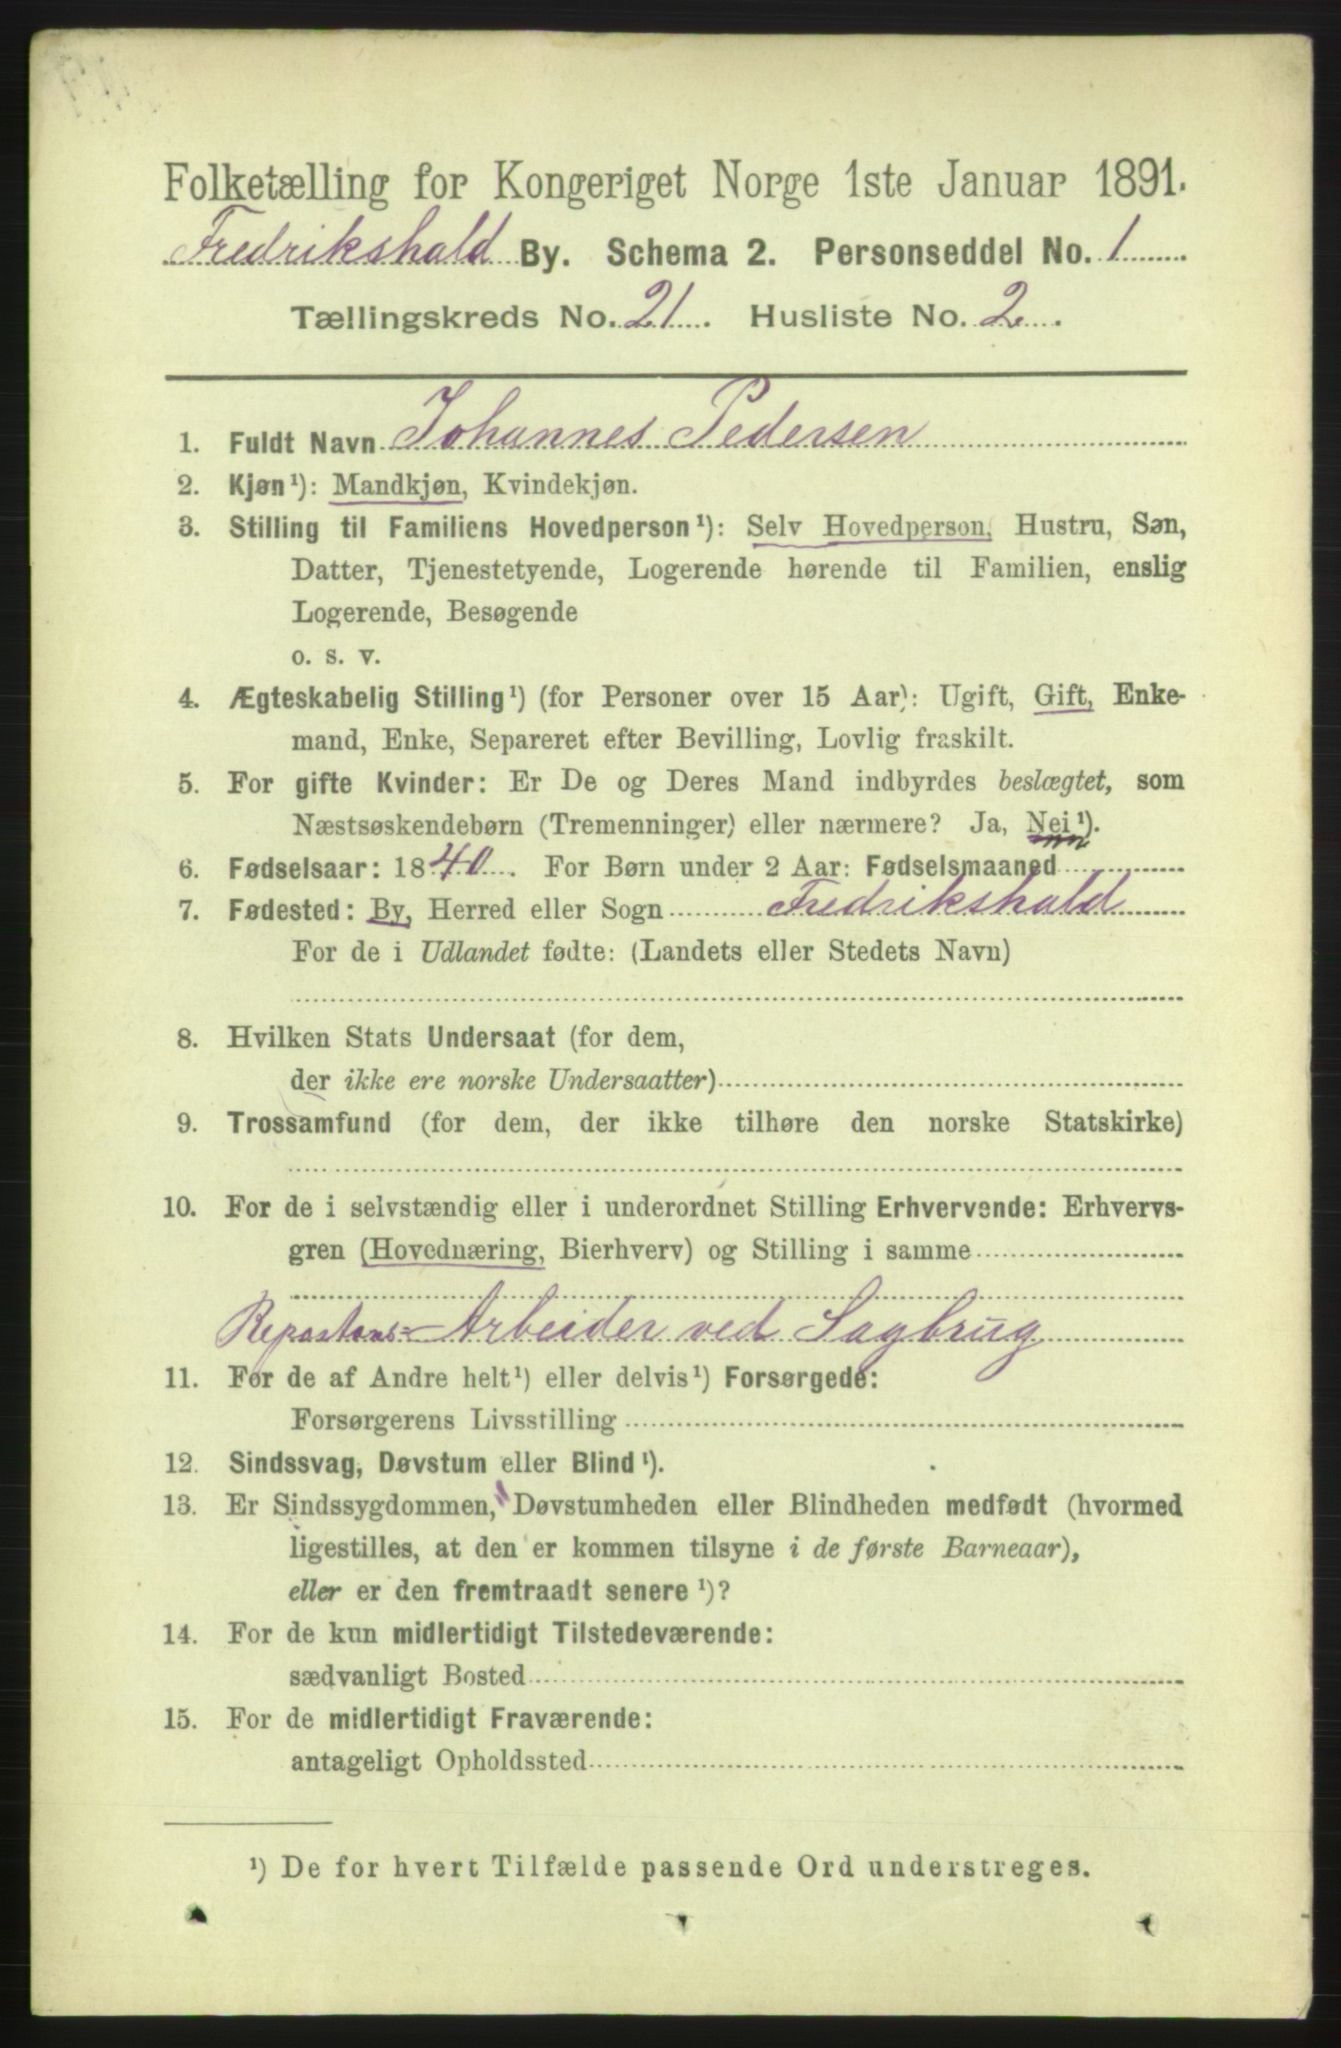 Folketælling for Kongeriget Norge 1ste Januar 1891.
Fredrikshald By. Schema 2. Personseddel No. 1
Tællingskreds No. 21. Husliste No. 2.
1. Fuldt Navn Johannes Pedersen
2. Kjøn¹): Mandkjøn, Kvindekjøn.
3. Stilling til Familiens Hovedperson¹): Selv Hovedperson, Hustru, Søn,
Datter, Tjenestetyende, Logerende hørende til Familien, enslig
Logerende, Besøgende
o. s. v.
4. Ægteskabelig Stilling¹) (for Personer over 15 Aar): Ugift, Gift, Enke-
mand, Enke, Separeret efter Bevilling, Lovlig fraskilt.
5. For gifte Kvinder: Er De og Deres Mand indbyrdes beslægtet, som
Næstsøskendebørn (Tremenninger) eller nærmere? Ja, Nei¹).
6. Fødselsaar: 1840. For Børn under 2 Aar: Fødselsmaaned
7. Fødested: By, Herred eller Sogn Fredrikshald
For de i Udlandet fødte: (Landets eller Stedets Navn)
8. Hvilken Stats Undersaat (for dem,
der ikke ere norske Undersaatter)
9. Trossamfund (for dem, der ikke tilhøre den norske Statskirke)
10. For de i selvstændig eller i underordnet Stilling Erhvervende: Erhvervs-
gren (Hovednæring, Bierhverv) og Stilling i samme
Arbeider ved Sagbrug
11. For de af Andre helt¹) eller delvis¹) Forsørgede:
Forsørgerens Livsstilling
12. Sindssvag, Døvstum eller Blind¹).
13. Er Sindssygdommen, Døvstumheden eller Blindheden medfødt (hvormed
ligestilles, at den er kommen tilsyne i de første Barneaar),
eller er den fremtraadt senere¹)?
14. For de kun midlertidigt Tilstedeværende:
sædvanligt Bosted
15. For de midlertidigt Fraværende:
antageligt Opholdssted
¹) De for hvert Tilfælde passende Ord understreges.